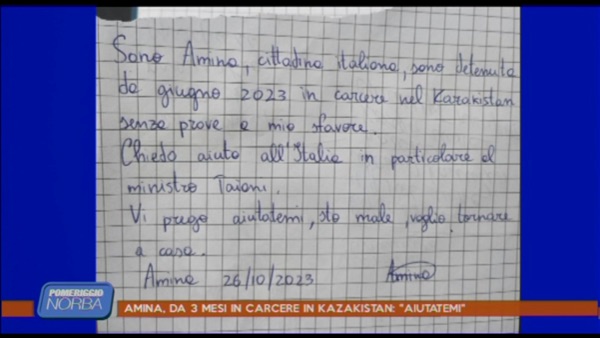 Sono Amina, cittadina italiana, sono detenuta
da giugno 2023 in carcere nel Kazakistan
senza prove a mio sfavore.
Chiedo aiuto all'Italia in particolare al
ministro Taiani.
Vi prego aiutatemi, sto male, voglio tornare
a casa.
Amina 26/10/2023 Amina
POMERIGGIO
NORBA
AMINA, DA 3 MESI IN CARCERE IN KAZAKISTAN: "AIUTATEMI"